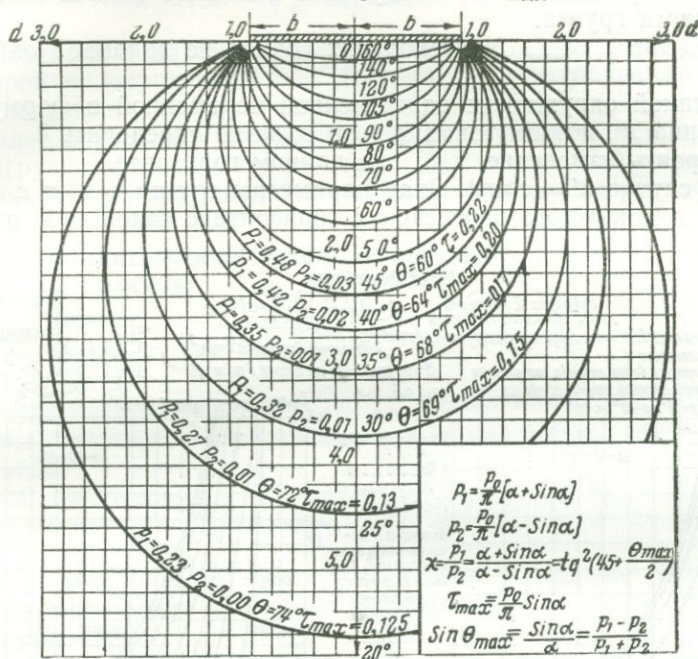 b b
d 3,0 2,0 1,0 1,0 2,0 3,0 d
0 160°
140°
120°
105°
1,0 90°
80°
70°
60°
2,0 50°
P₁=0,48 P₂=0,03 45° θ=60° τ=0,22
P₁=0,42 P₂=0,02 40° θ=64° τmax=0,20
P₁=0,35 P₂=0,01 3,0 35° θ=68° τmax=0,17
P₁=0,32 P₂=0,01 30° θ=69° τmax=0,15
4,0
P₁=0,27 P₂=0,01 θ=72° τmax=0,13
25°
5,0
P₁=0,23 P₂=0,00 θ=74° τmax=0,125
20°
P₁=P₀/π[α+Sinα]
P₂=P₀/π[α-Sinα]
x=P₁/P₂=α+Sinα/α-Sinα=tg²(45+θmax/2)
τmax=P₀/π Sinα
Sin θmax=Sinα/α=P₁-P₂/P₁+P₂